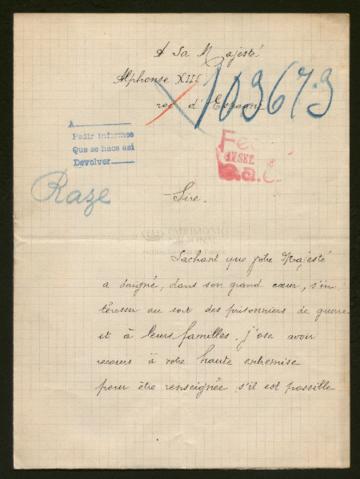 A Sa Majesté
Alphonse XIII
roi d'Espagne
103673
A
Pedir informes
Que se hace así
Devolver
17 SEP.
Raze
Sire.
PATRIMONIO
NACIONAL
Sachant que votre Majesté
a daigné, dans son grand cœur, s'in
téresser au sort des prisonniers de guerre
et à leurs familles, j'ose avoir
recours à votre haute entremise
pour être renseignée s'il est possible